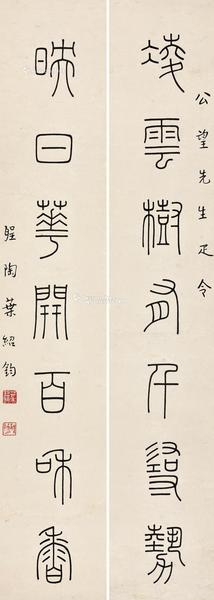 公望先生疋令
凌雲樹有千尋勢
映日華開百和香
聖陶葉紹鈞